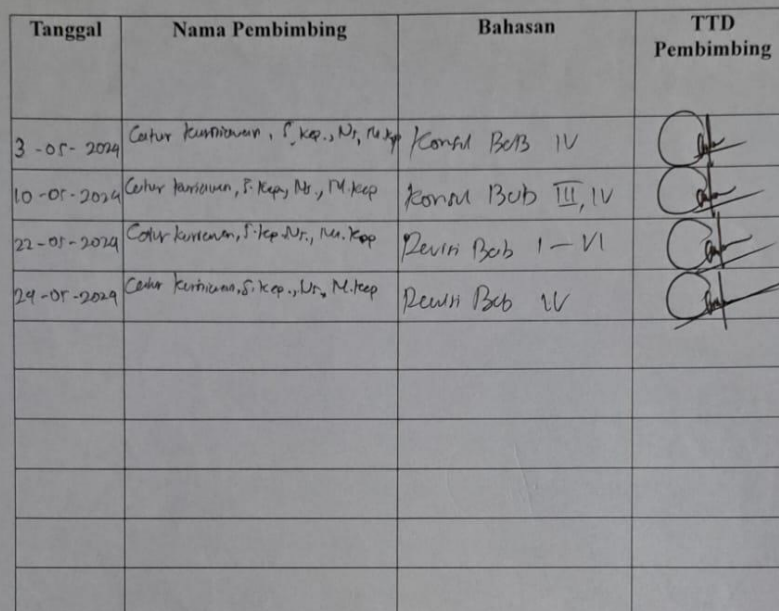 Tanggal Nama Pembimbing Bahasan TTD Pembimbing
3-05-2024 Catur Kurniawan, S.Kep., Ns, M.Kep Konsul BAB IV
10-05-2024 Catur Kurniawan, S.Kep, Ns., M.Kep Konsul Bab III, IV
22-05-2024 Catur Kurniawan, S.Kep.Ns., M.Kep Revisi Bab I - VI
29-05-2024 Catur Kurniawan, S.Kep., Ns, M.Kep Revisi Bab IV